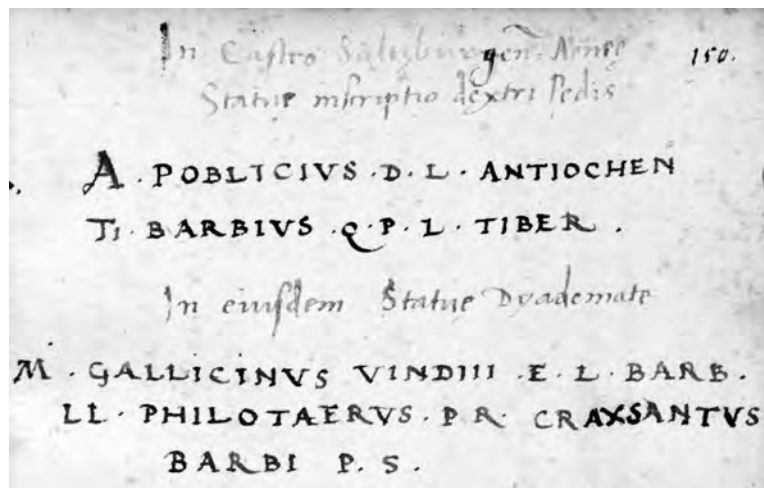 In Castro Saltzburgen. Aenee 150.
Statue inscriptio dextri Pedis
A . POBLICIVS . D . L . ANTIOCHEN
TI . BARBIVS . Q . P . L . TIBER .
In eiusdem Statue Dyademate
M . GALLICINVS VINDIII . E . L . BARB .
LL . PHILOTAERVS . P R . CRAXSANTVS
BARBI P . S .